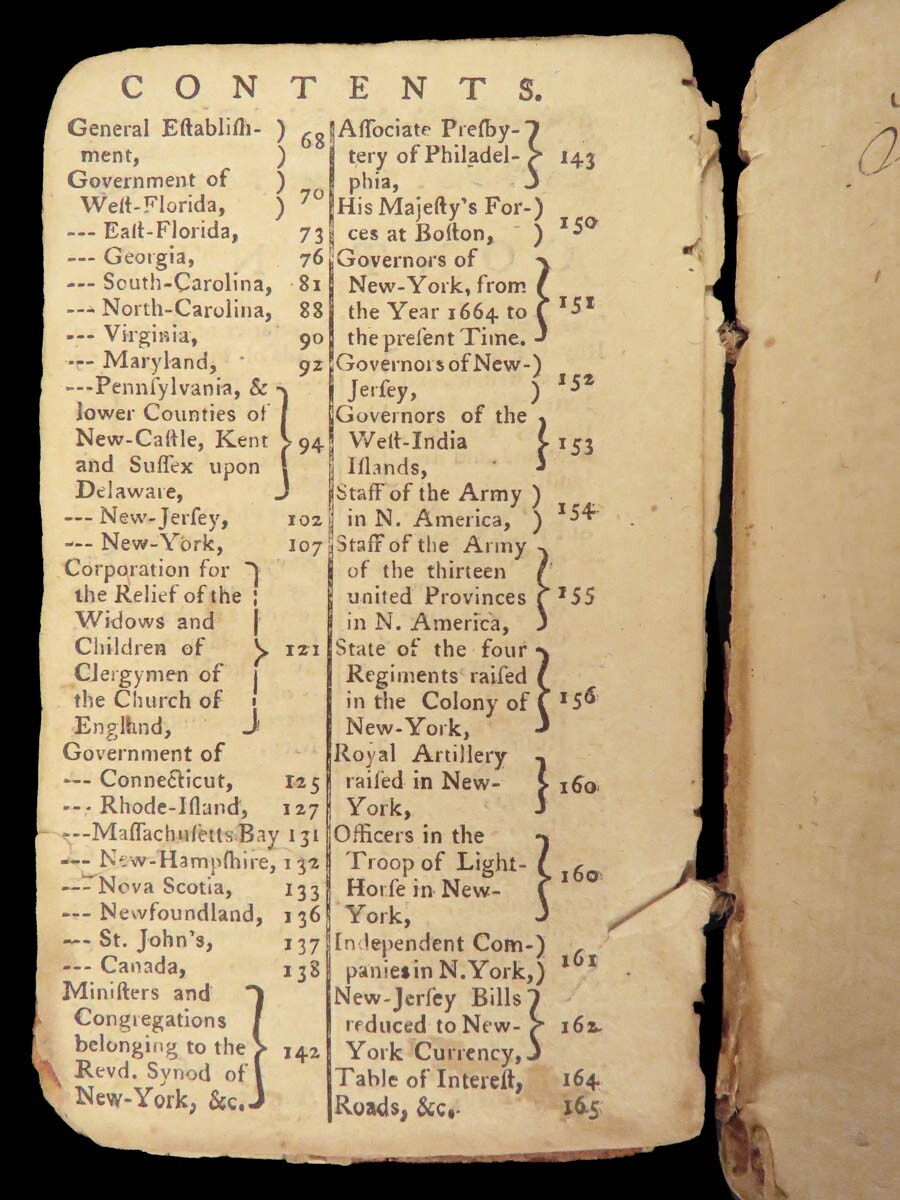 CONTENTS.
General Eſtabliſh-
ment, 68
Government of
Weſt-Florida, 70
--- Eaſt-Florida, 73
--- Georgia, 76
--- South-Carolina, 81
--- North-Carolina, 88
--- Virginia, 90
--- Maryland, 92
---Pennſylvania, &
lower Counties of
New-Caſtle, Kent 94
and Suſſex upon
Delaware,
--- New-Jerſey, 102
--- New-York, 107
Corporation for
the Relief of the
Widows and
Children of 121
Clergymen of
the Church of
England,
Government of
--- Connecticut, 125
--- Rhode-Iſland, 127
---Maſſachuſetts Bay 131
--- New-Hampſhire, 132
--- Nova Scotia, 133
--- Newfoundland, 136
--- St. John's, 137
--- Canada, 138
Miniſters and
Congregations
belonging to the 142
Revd. Synod of
New-York, &c.
Aſſociate Preſby-
tery of Philadel- 143
phia,
His Majeſty's For-
ces at Boſton, 150
Governors of
New-York, from
the Year 1664 to 151
the preſent Time.
Governors of New-
Jerſey, 152
Governors of the
Weſt-India 153
Iſlands,
Staff of the Army
in N. America, 154
Staff of the Army
of the thirteen
united Provinces 155
in N. America,
State of the four
Regiments raiſed
in the Colony of 156
New-York,
Royal Artillery
raiſed in New- 160
York,
Officers in the
Troop of Light-
Horſe in New- 160
York,
Independent Com-
panies in N. York, 161
New-Jerſey Bills
reduced to New- 162
York Currency,
Table of Intereſt, 164
Roads, &c. 165